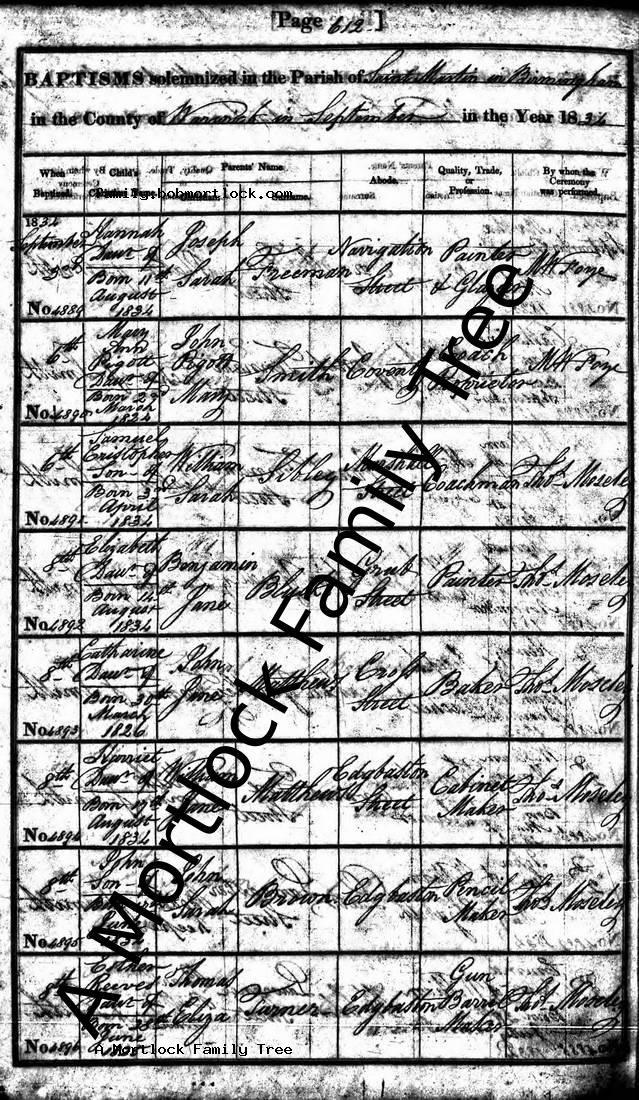 [Page 612.]
BAPTISMS solemnized in the Parish of Saint Martin in Birmingham
in the County of Warwick in September in the Year 1834
When Baptized. Child's Christian Name. Parents' Name. Abode. Quality, Trade, or Profession. By whom the Ceremony was performed.
family.bobmortlock.com
1834
September
No. 4889
Hannah
Dawr of
Born 11th
August
1834
Joseph
Sarah
Freeman
Navigation
Street
Painter
& Glazier
M W Foye
6th
No. 4890
Mary
Ann
Pigott
Dawr of
Born 23d
March
1834
John
Pigott
Mary
Smith
Coventry
Coach
Proprietor
M W Foye
6th
No. 4891
Samuel
Cristopher
Son of
Born 3rd
April
1834
William
Sarah
Sibley
Street
Coachman
Thos Moseley
8th
No. 4892
Elizabeth
Dawr of
Born 14th
August
1834
Benjamin
Jane
Grub
Street
Painter
Thos Moseley
8th
No. 4893
Catharine
Dawr of
Born 30th
March
1826
John
Jane
Matthews
Cross
Street
Baker
Thos Moseley
8th
No. 4894
Harriet
Dawr of
Born 17th
August
1834
William
Jane
Matthews
Edgbaston
Street
Cabinet
Maker
Thos Moseley
8th
No. 4895
John
Son of
Born
June
John
Sarah
Brown
Edgbaston
Pencil
Maker
Thos Moseley
8th
No. 4896
Esther
Reeves
Dawr of
Born 28th
June
Thomas
Eliza
Turner
Edgbaston
Gun
Barrel
Maker
Thos Moseley
A Mortlock Family Tree
A Mortlock Family Tree